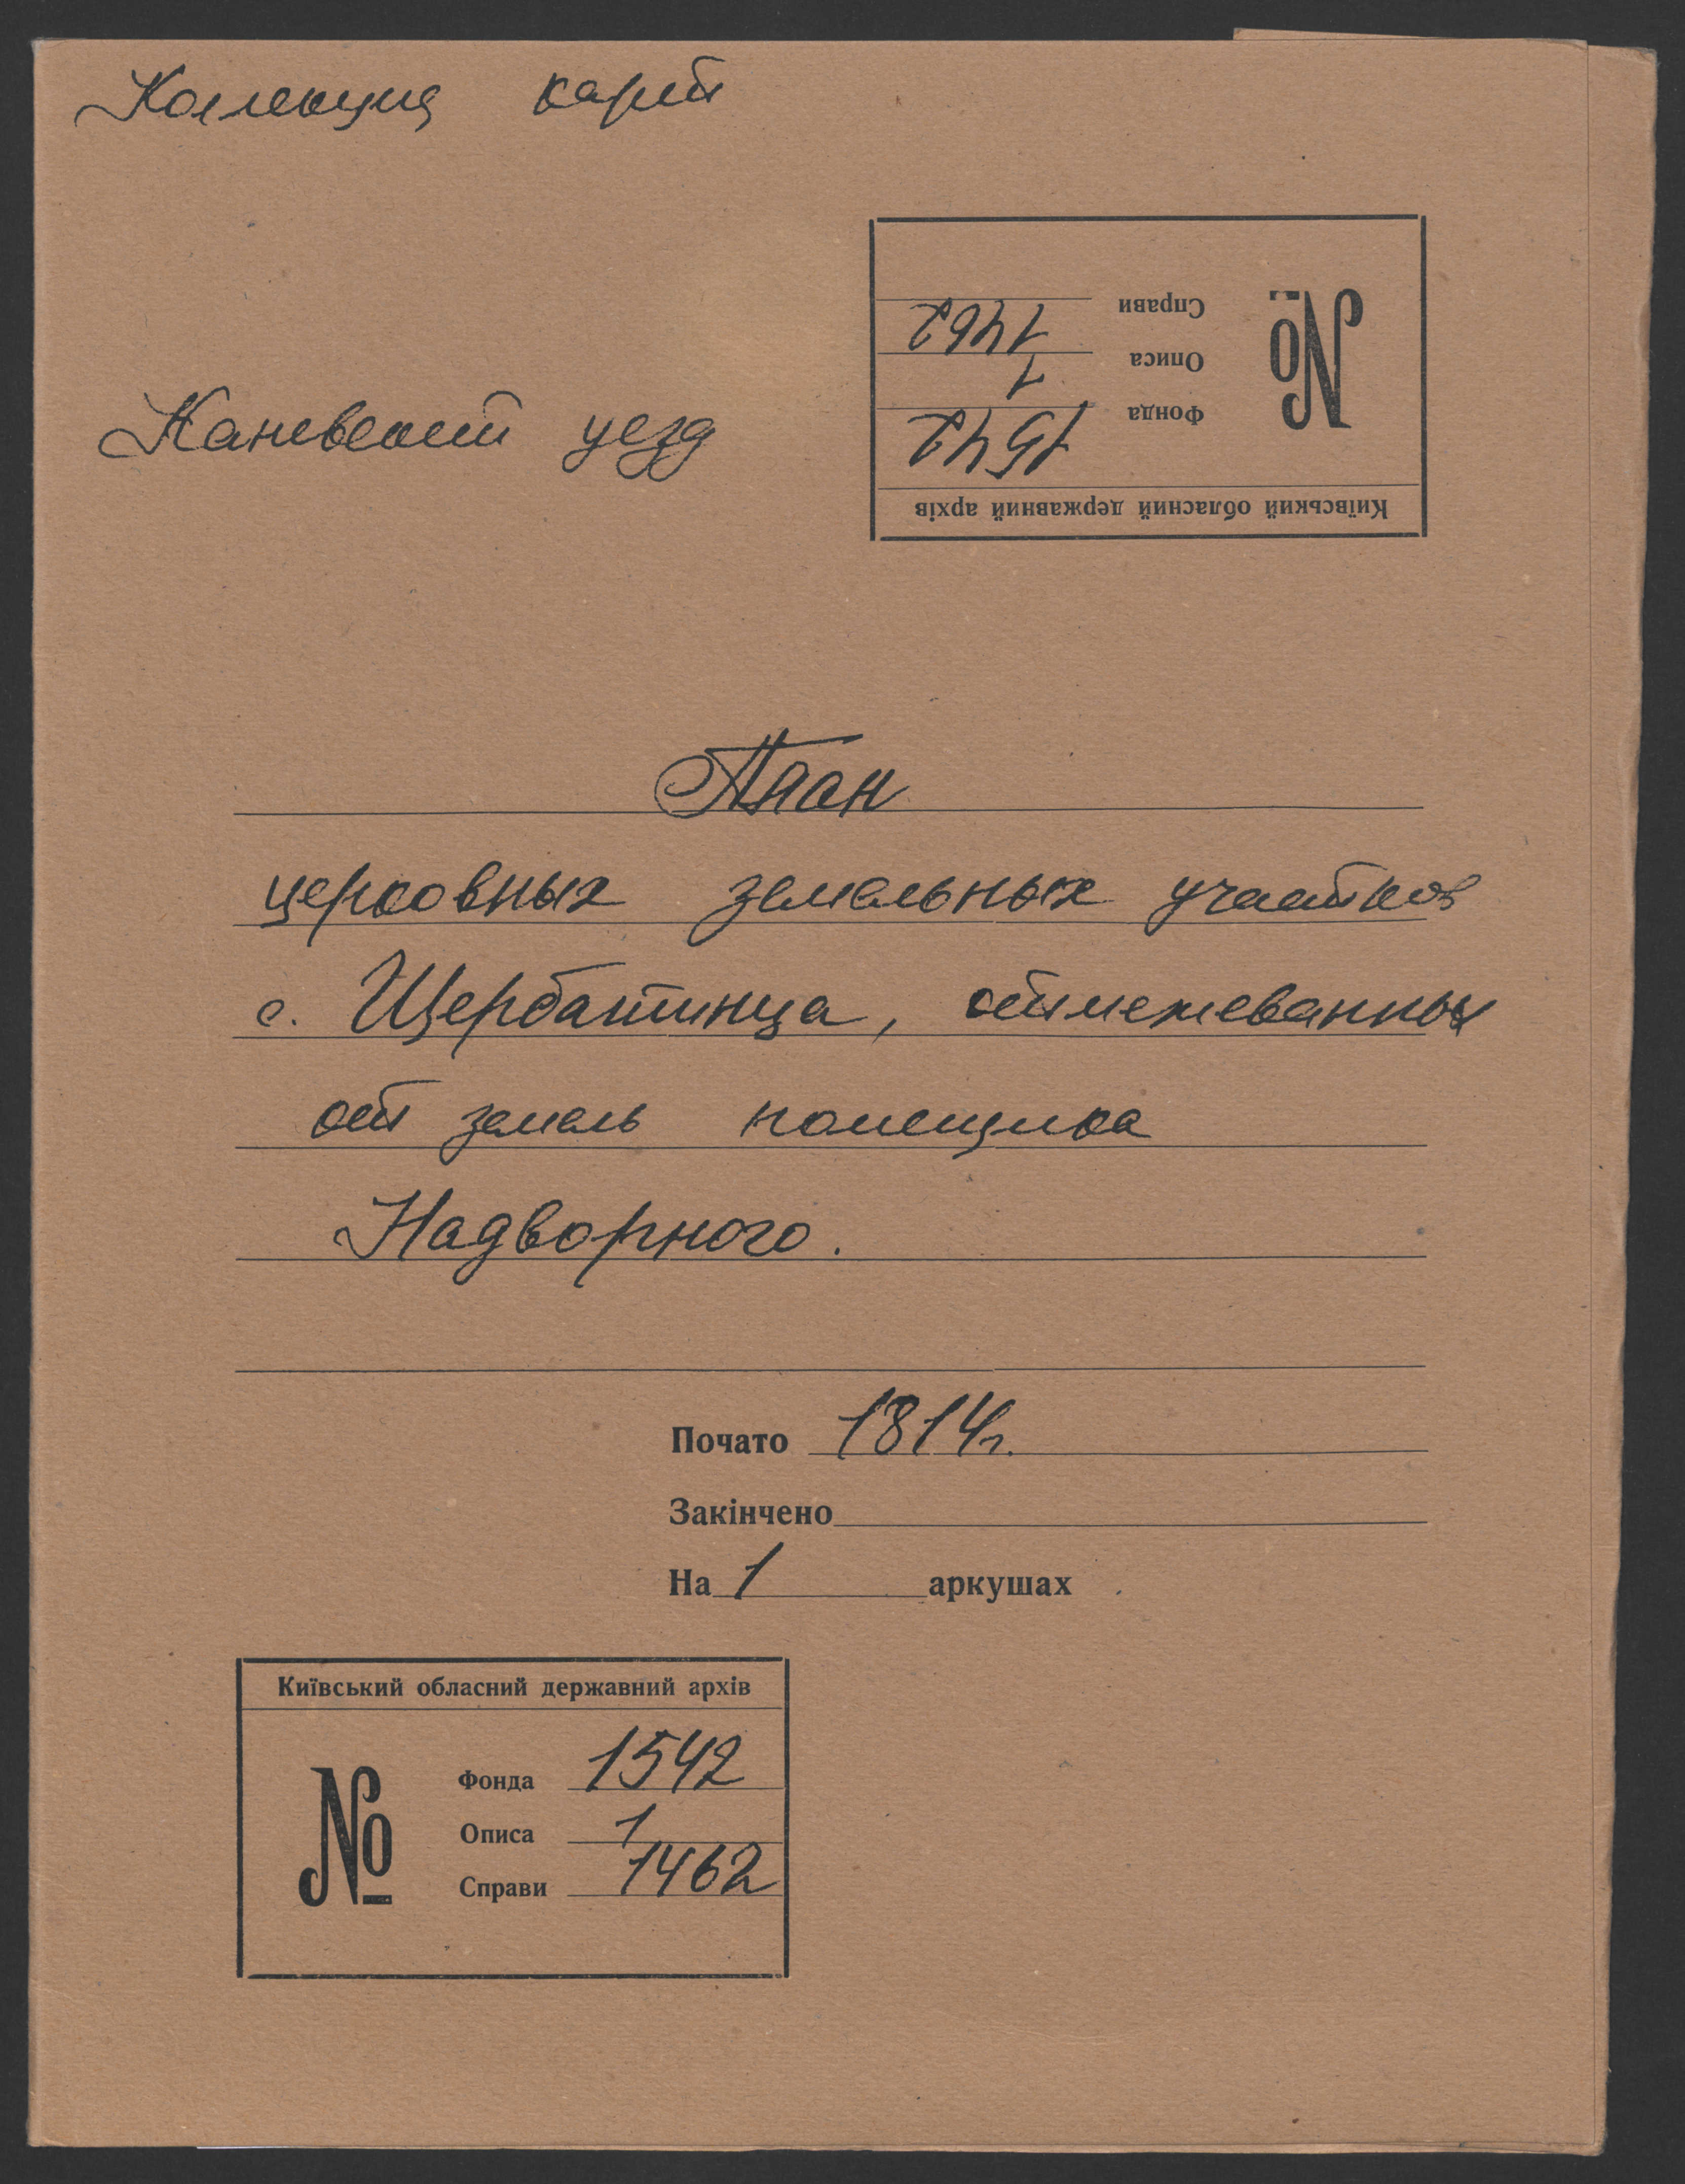 Коллекция карт
Киïвський обласний державний архів
Фонда 1542
Описа 1
Справи 1462
№
Каневский уезд
План
церковных земельных участков
с. Щербатинца, отмежеванных
от земель помещика
Надворного.
Почато 1814г.
Закінчено
На 1 аркушах
Київський обласний державний архів
№
Фонда 1542
Описа 1
Справи 1462